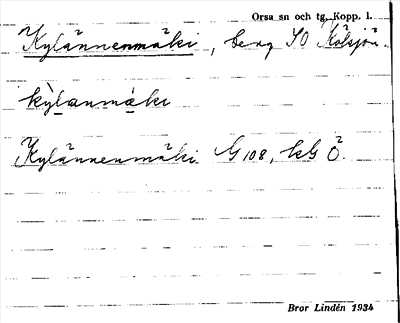 Orsa sn och tg. Kopp. l.
Kylännenmäki, berg SO Kölsjön.
kỳlanmäki
Kylännenmäki G108, kG Ö.
Bror Lindén 1934